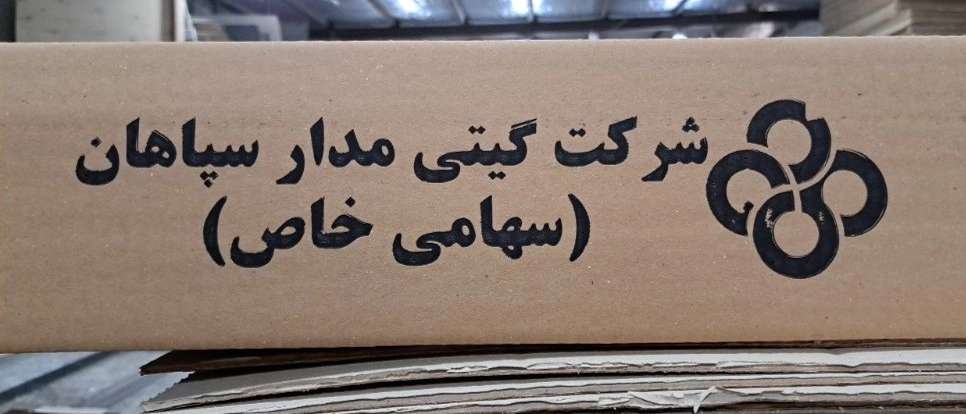 شرکت گیتی مدار سپاهان
(سهامی خاص)